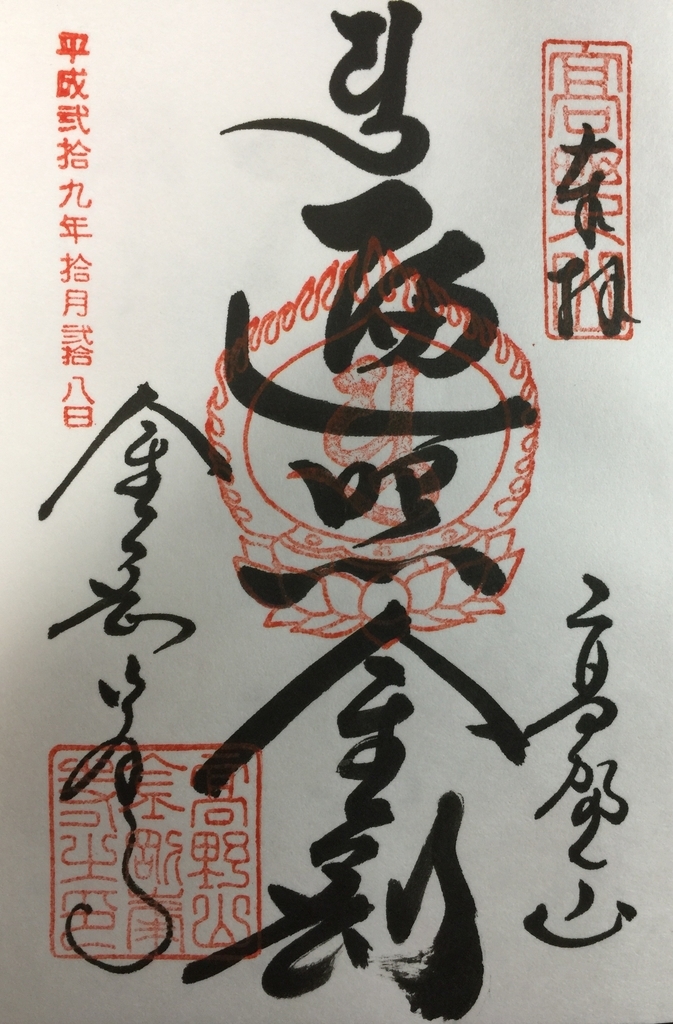 奉拝
高野山
遍照金剛
平成弐拾九年拾月弐拾八日
金剛峯寺
高野山
金剛峯